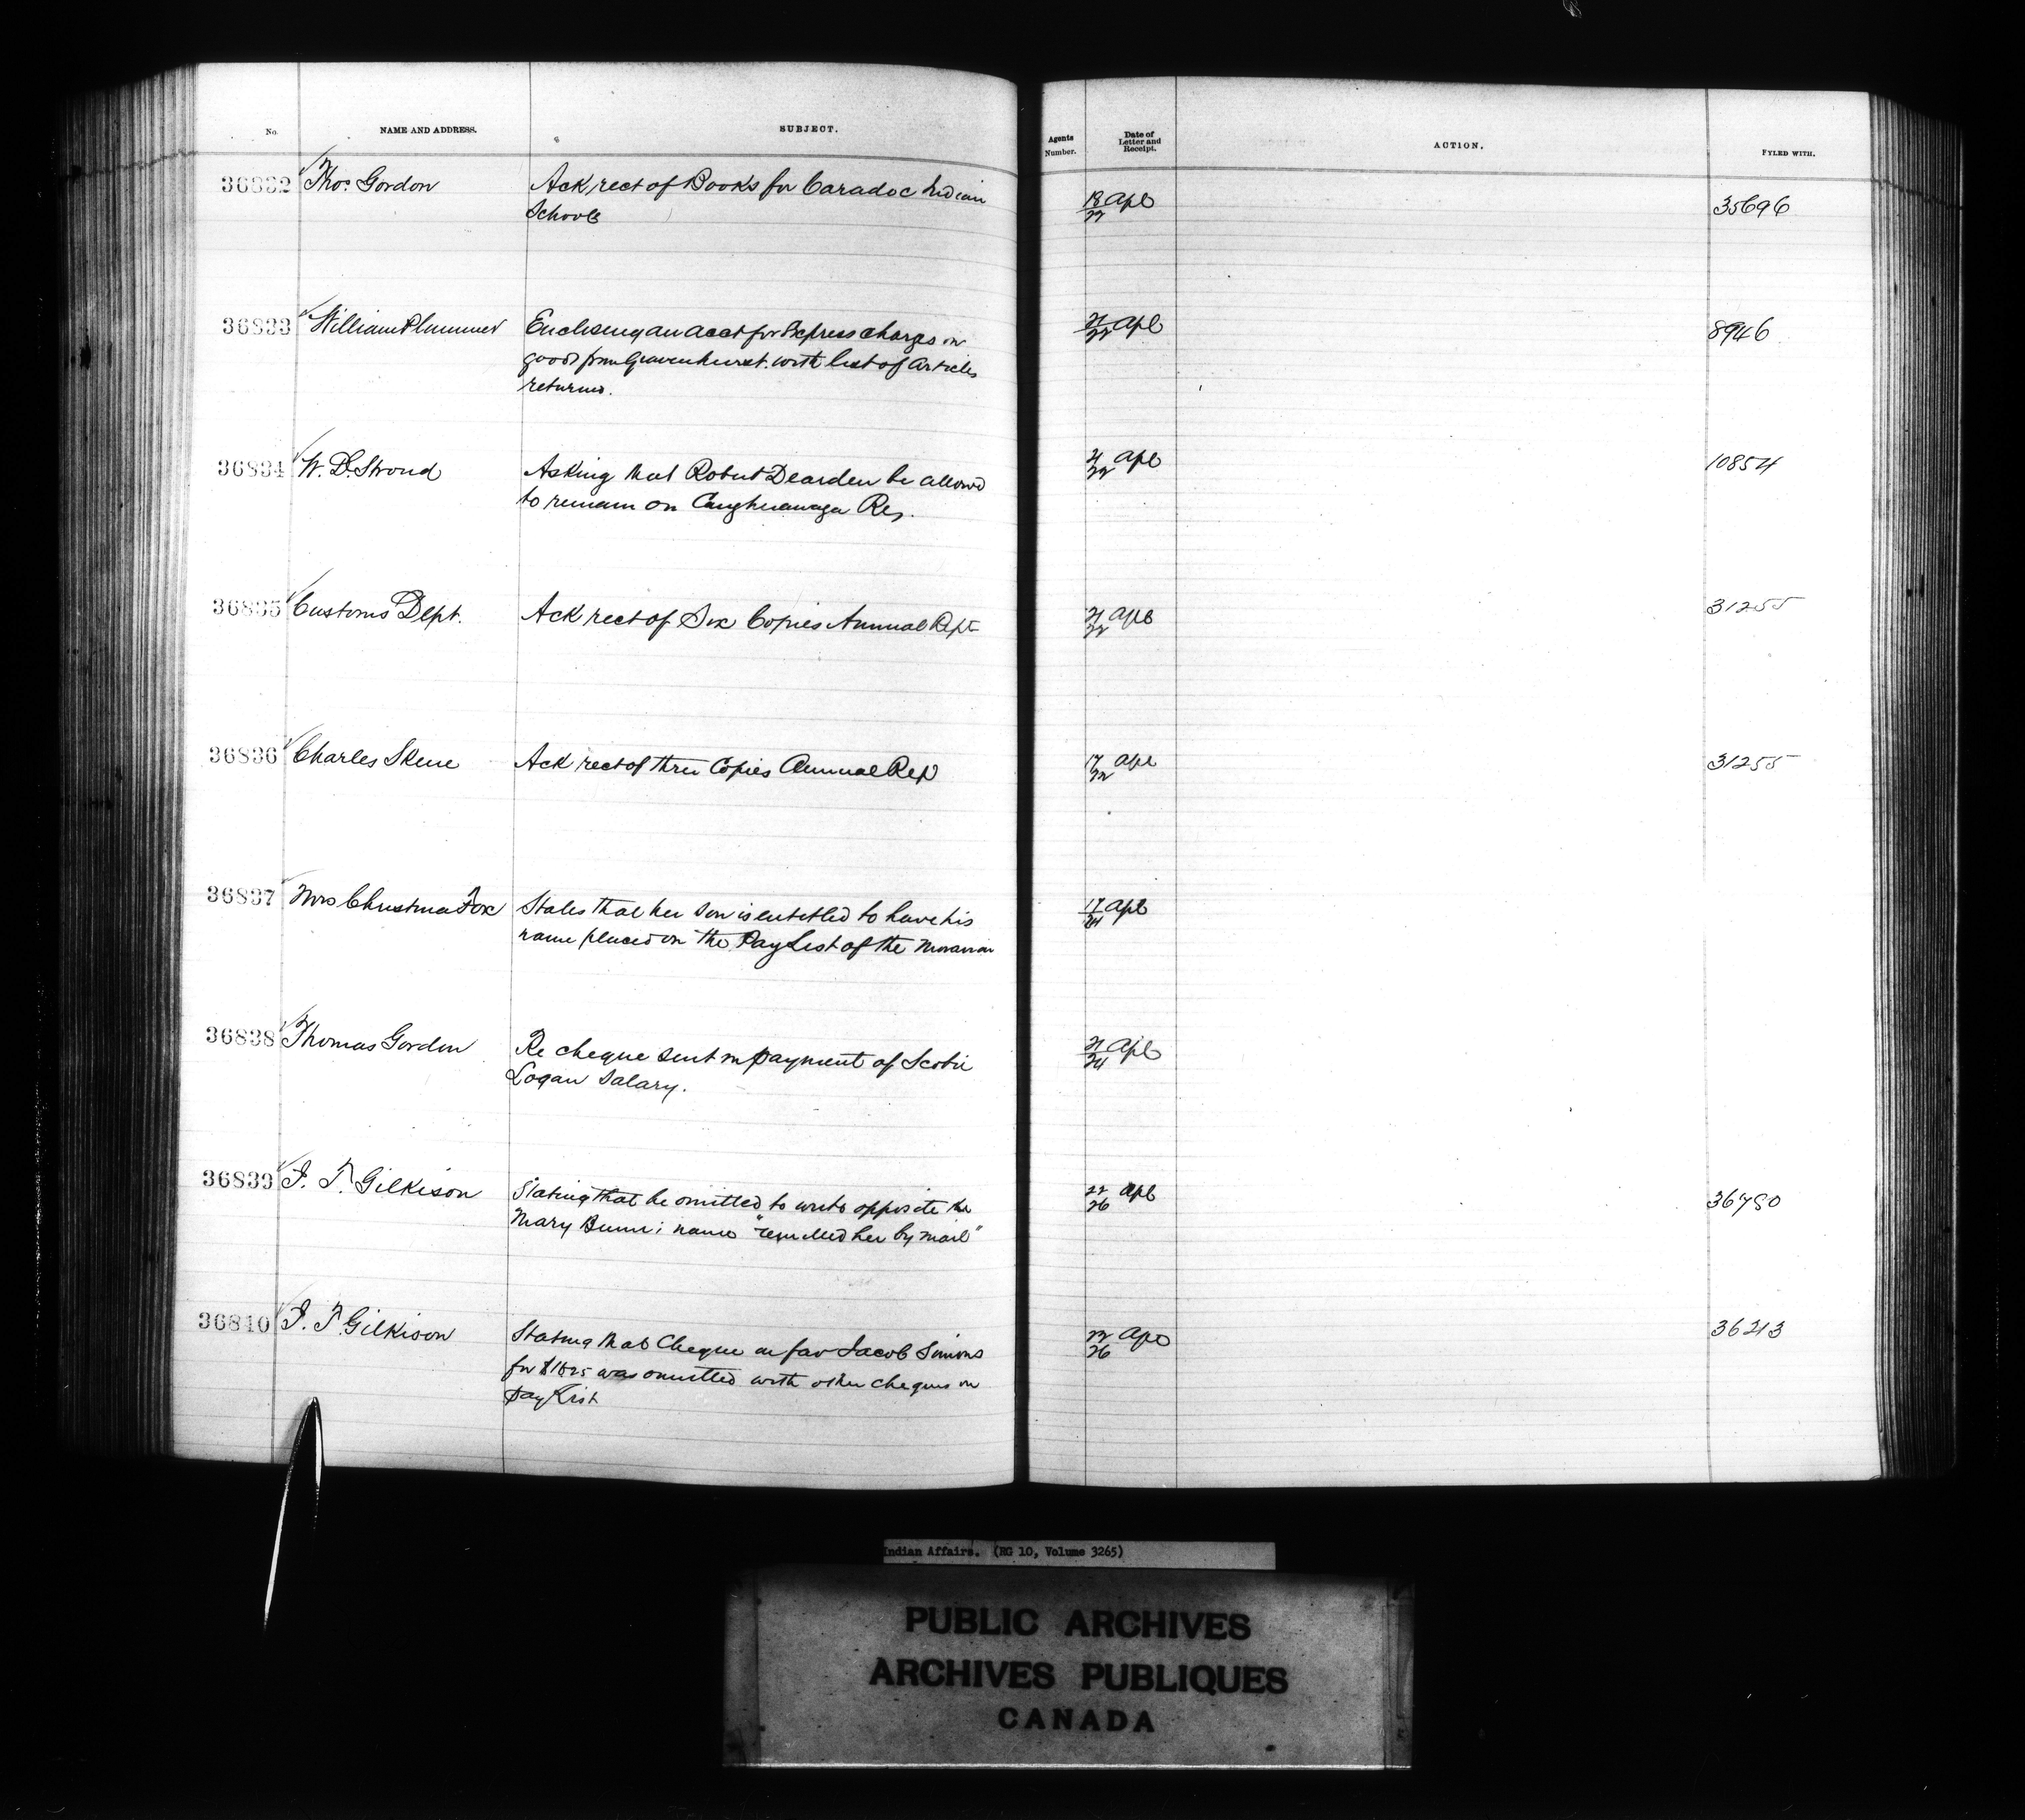 No. NAME AND ADDRESS. SUBJECT. Agents Number. Date of Letter and Receipt. ACTION. FYLED WITH.
36832 Tho.s Gordon Ack rect of Books for Caradoc Indian 18/22 Apl 35696
Schools
36833 William Plummer Enclosing an acct for Express charges on 21/22 Apl 8946
goods from Gravenhurst. with list of articles
returned.
36834 W. D. Stroud Asking that Robert Dearden be allowed 21/22 Apl 10854
to remain on Caughnawaga Res.
36835 Customs Dept. Ack rect of Six Copies Annual Rept 21/22 Apl 31255
36836 Charles Skene Ack rect of three Copies Annual Rep 17/22 Apl 31255
36837 Mrs Christina Fox States that her son is entitled to have his 17/24 Apl
name placed on the Pay List of the Moravian
36838 Thomas Gordon Re cheque sent in payment of Scobie 21/24 Apl
Logan Salary.
36839 J. T. Gilkison Stating that he omitted to write opposite the 22/26 Apl 36790
Mary name "remitted her by mail"
36840 J. T. Gilkison Stating that Cheque in fav Jacob Simons 22/26 Apl 36213
for was omitted with other cheques on
Pay List
Indian Affairs. (RG 10, Volume 3265)
PUBLIC ARCHIVES
ARCHIVES PUBLIQUES
CANADA